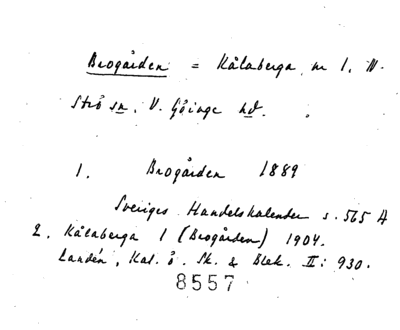 Brogården = Kålaberga nr 1. N.
Strö sn. V. Göinge hd.
1. Brogården 1889
Sveriges Handelskalender s. 565 A
2. Kålaberga 1 (Brogården) 1904.
Landén, Kal. ö. Sk. & Blek. II: 930.
8557